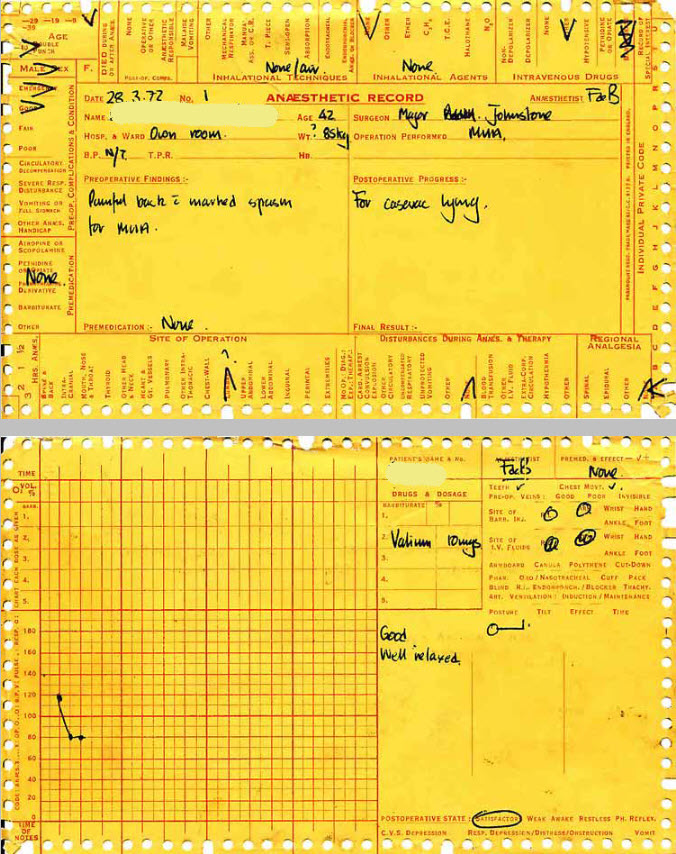 -29 -19 -9
-39
AGE
DOUBLE
PUNCH
DIED DURING OR AFTER ANÆS.
NONE
OPERATIVE OR OTHER
ANÆSTHETIC RESPONSIBLE
MALAISE VOMITING
OTHER
MECHANICAL RESPIRATOR
MANUAL ASS. OR C.R.
T. PIECE
SEMI-OPEN
ABSORPTION
ENDOTRACHEAL
NONE
OTHER
ETHER
C₃H₆
T.C.E.
HALOTHANE
N₂O
NON-DEPOLARIZER
DEPOLARIZER
OTHER
HYPOTENSIVE
PETHIDINE OR OPIATE
RECORD OF SPECIAL INTEREST
None/air.
None
MALE SEX F.
POST-OP. COMPS.
INHALATIONAL TECHNIQUES
INHALATIONAL AGENTS
INTRAVENOUS DRUGS
EMERGENCY
GOOD
FAIR
POOR
CIRCULATORY DECOMPENSATION
SEVERE RESP. DISTURBANCE
VOMITING OR FULL STOMACH
OTHER ANÆS. HANDICAP
ATROPINE OR SCOPOLAMINE
PETHIDINE OR OPIATE
None.
DERIVATIVE
BARBITURATE
OTHER
PRE-OP. COMPLICATIONS & CONDITION
PREMEDICATION
DATE 28.3.72 No. 1 ANÆSTHETIC RECORD ANÆSTHETIST
NAME AGE 42 SURGEON Major Johnstone
HOSP. & WARD Own room. WT. ? 85kg OPERATION PERFORMED MUA.
B.P. N/T. T.P.R. HB.
PREOPERATIVE FINDINGS :-
Painful back c̄ marked spasm
for MUA.
POSTOPERATIVE PROGRESS :-
For casevac lying.
PREMEDICATION :- None.
FINAL RESULT :-
PRINTED IN ENGLAND.
INDIVIDUAL PRIVATE CODE
SITE OF OPERATION
DISTURBANCES DURING ANÆS. & THERAPY
REGIONAL ANALGESIA
3 2 1 ½
HRS. ANÆS.
SPINE & BACK
INTRA-CRANIAL
MOUTH, NOSE & THROAT
THYROID
OTHER HEAD & NECK
HEART & GT. VESSELS
PULMONARY
OTHER INTRA-THORACIC
CHEST-WALL
?
UPPER ABDOMINAL
LOWER ABDOMINAL
INGUINAL
PERINEAL
EXTREMITIES
CARD. ARREST CONVULSION EXPLOSION
OTHER CIRCULATORY
UNCOMPENSATED RESPIRATORY
UNPROTECTED VOMITING
OTHER
NONE
BLOOD TRANSFUSION
OTHER I.V. FLUID
EXTRA-CORP. CIRCULATION
HYPOTHERMIA
OTHER
SPINAL
EPIDURAL
OTHER
TIME
O₂ VOL. %
BARB.
1.
2.
3.
4.
5.
180
160
140
120
100
80
60
40
20
0
TIME OF NOTES
PATIENT'S NAME & No.
ANÆSTHETIST
PREMED. & EFFECT
None.
DRUGS & DOSAGE
BARBITURATE %
1.
2. Valium 10mgs
3.
4.
5.
TEETH ✓ CHEST MOVT. ✓.
PRE-OP. VEINS : GOOD POOR INVISIBLE
SITE OF BARB. INJ.
WRIST HAND
ANKLE, FOOT
SITE OF I.V. FLUIDS
WRIST HAND
ANKLE FOOT
ARMBOARD CANULA POLYTHENE CUT-DOWN
PHAR. ORO/NASOTRACHEAL CUFF PACK
BLIND R.I., ENDOBRONCH./BLOCKER TRACHY.
ART. VENTILATION : INDUCTION / MAINTENANCE
POSTURE TILT EFFECT TIME
Good
Well relaxed.
POSTOPERATIVE STATE : SATISFACTORY WEAK AWAKE RESTLESS PH. REFLEX.
C.V.S. DEPRESSION RESP. DEPRESSION/DISTRESS/OBSTRUCTION VOMIT